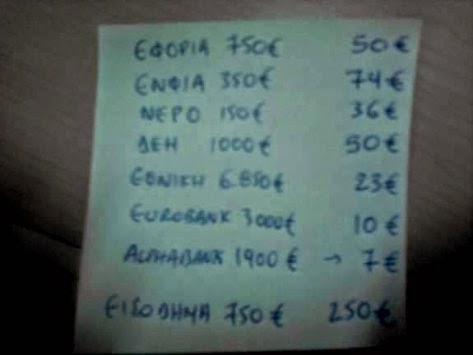 ΕΦΟΡΙΑ 750€ 50€
ΕΝΦΙΑ 350€ 74€
ΝΕΡΟ 150€ 36€
ΔΕΗ 1000€ 50€
ΕΘΝΙΚΗ 6.850€ 23€
EUROBANK 3000€ 10€
ALPHABANK 1900€ → 7€
ΕΙΣΟΔΗΜΑ 750€ 250€